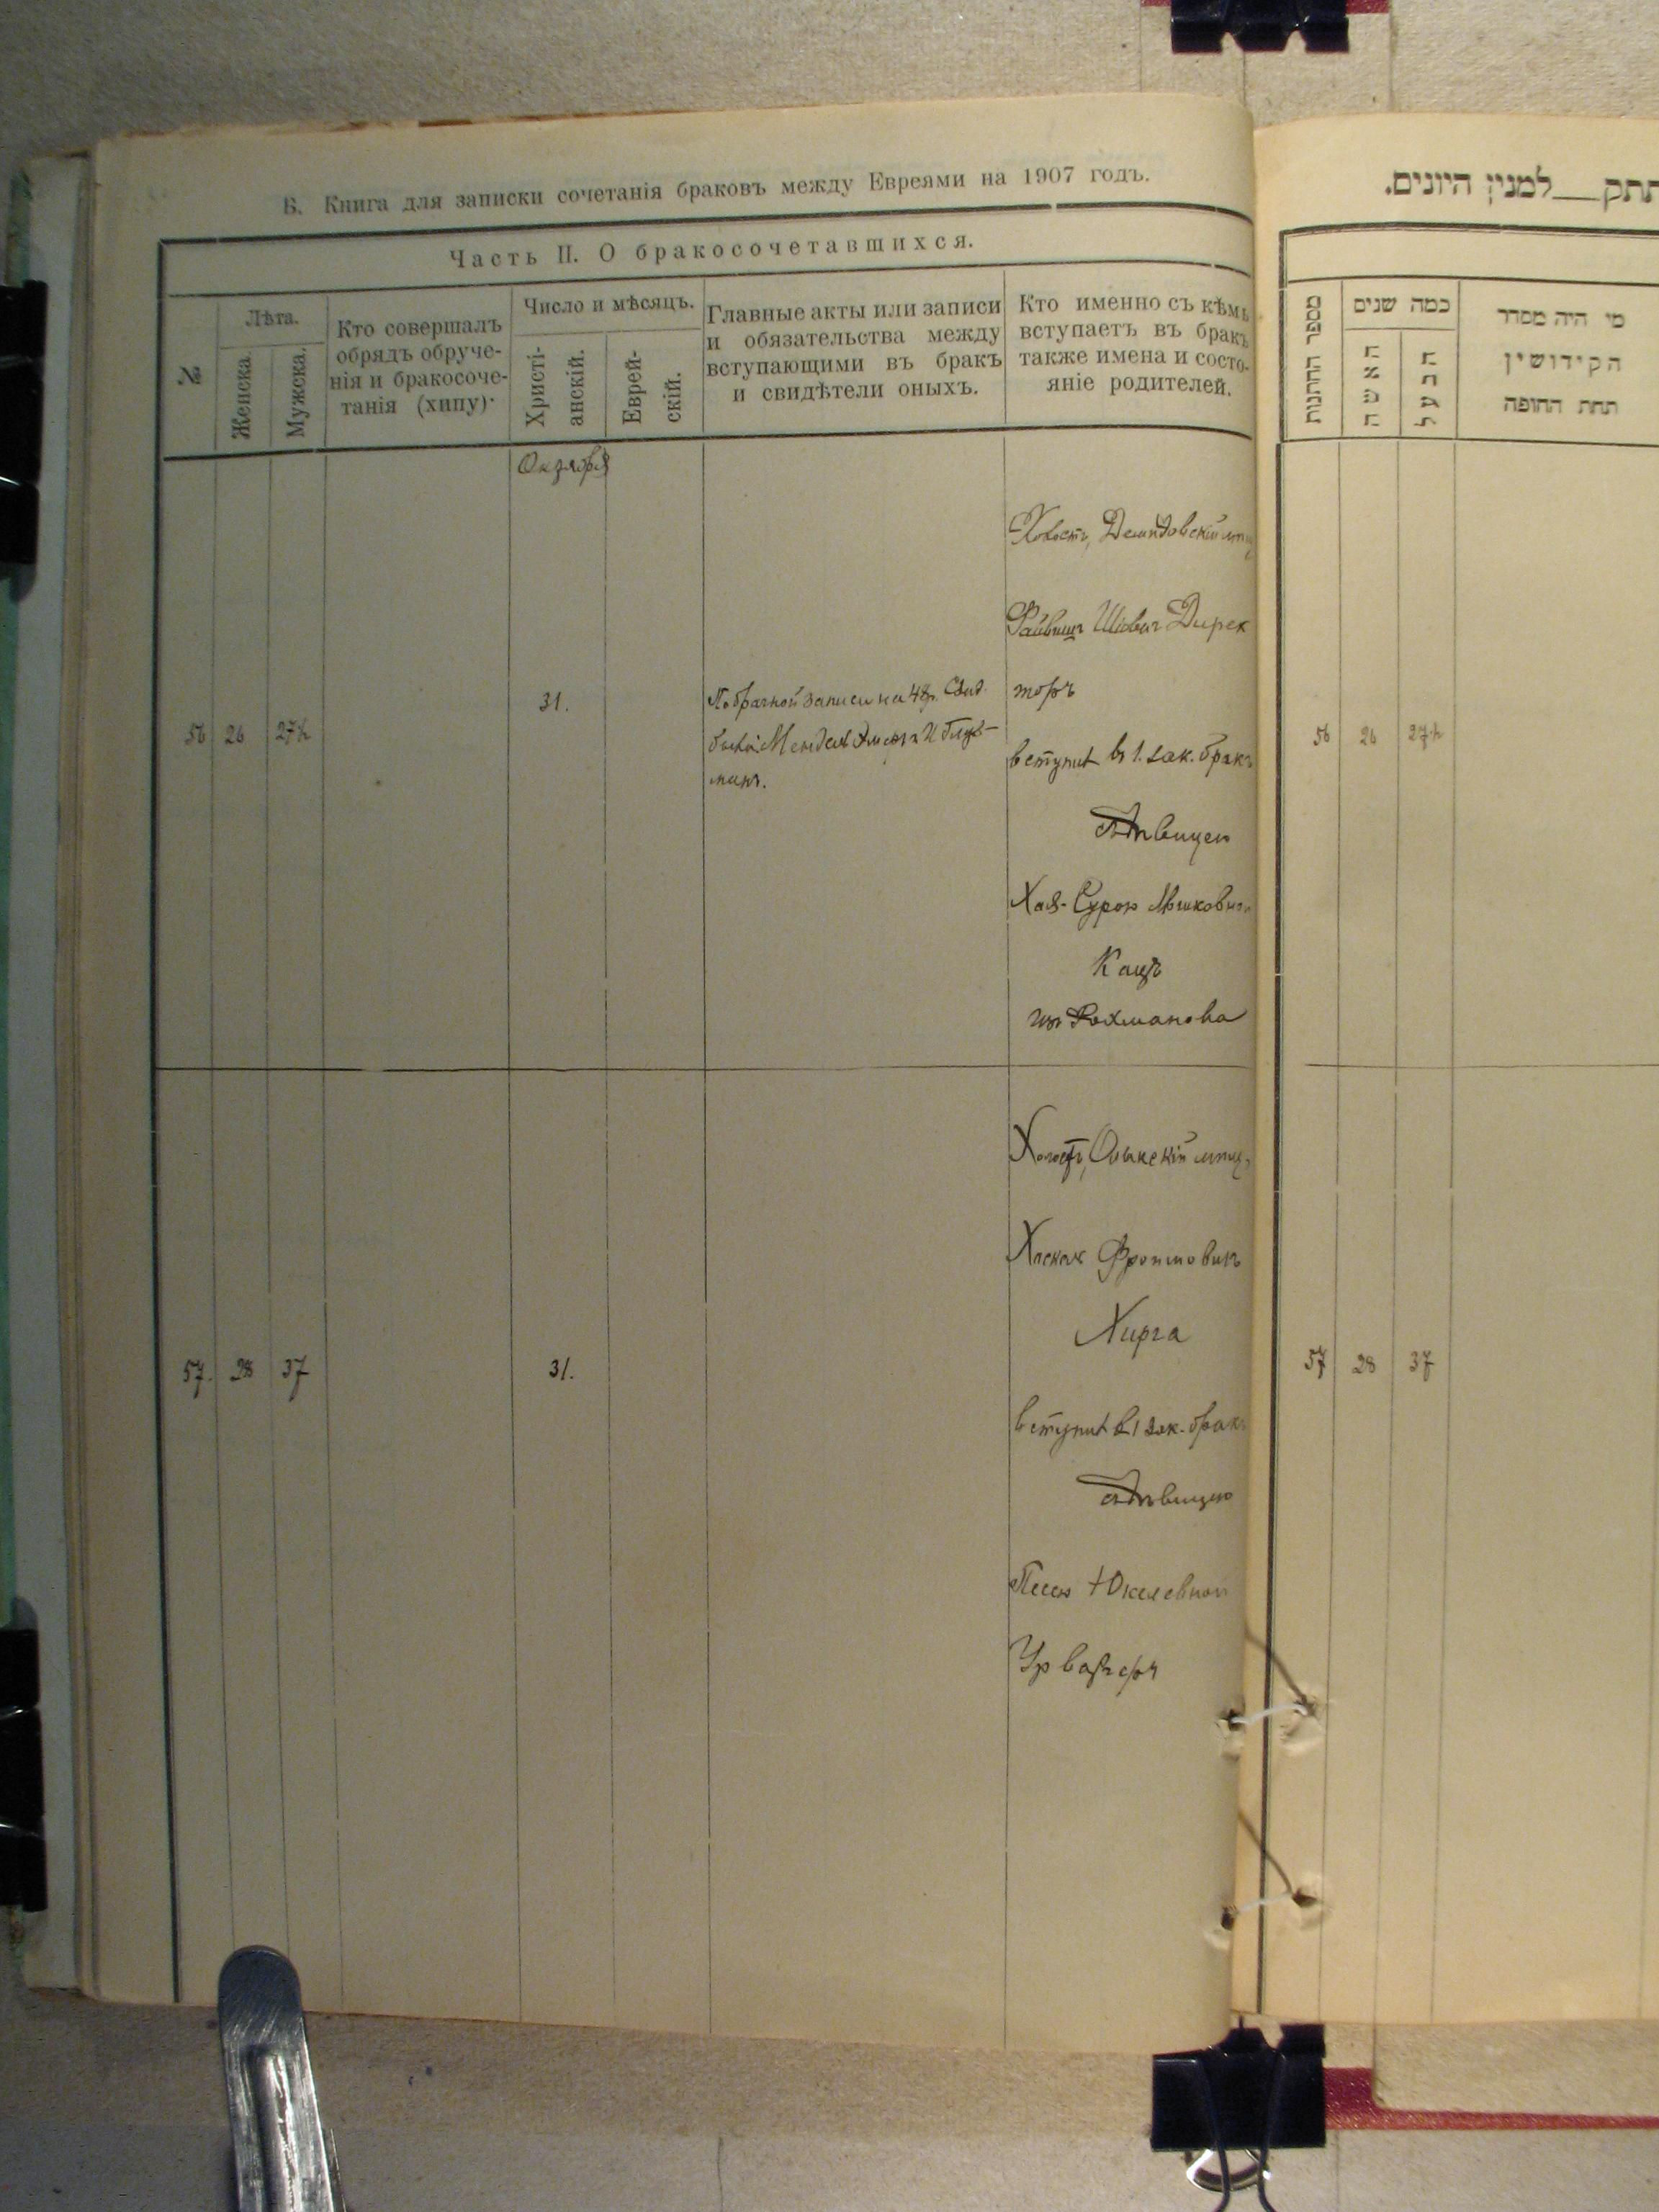 В. Книга для записки сочетанія браковъ между Евреями на 1907 годъ.
Часть II. О бракосочетавшихся.
№
Лѣта.
Женска.
Мужска.
Кто совершалъ
обрядъ обруче-
нія и бракосоче-
танія (хипу).
Число и мѣсяцъ.
Христі-
анскій.
Еврей-
скій.
Главные акты или записи
и обязательства между
вступающими въ бракъ
и свидѣтели оныхъ.
Кто именно съ кѣмъ
вступаетъ въ бракъ
также имена и состо-
яніе родителей.
Октября
Холостъ, Демидовскій
Файвишъ Шіовичъ Дирек
торъ
вступил въ 1. зак. бракъ
съ Дѣвицею
Хая-Сурою
Кацъ
изъ Рохманова
56 26 27½
31.
По брачной записи на 48р. Свид.
были: Мендель
манъ.
Холостъ, Олыкскій мѣщ.
Хаскель Фроимовичъ
Хирга
вступил въ 1 зак. бракъ
съ Дѣвицею
Песею Юкелевною
57. 28 37
31.
תתק__למנין היונים.
מספר החתונות
כמה שנים
האשה
הבעל
מי היה מסדר
הקידושין
תחת החופה
56 26 27½
57 28 37